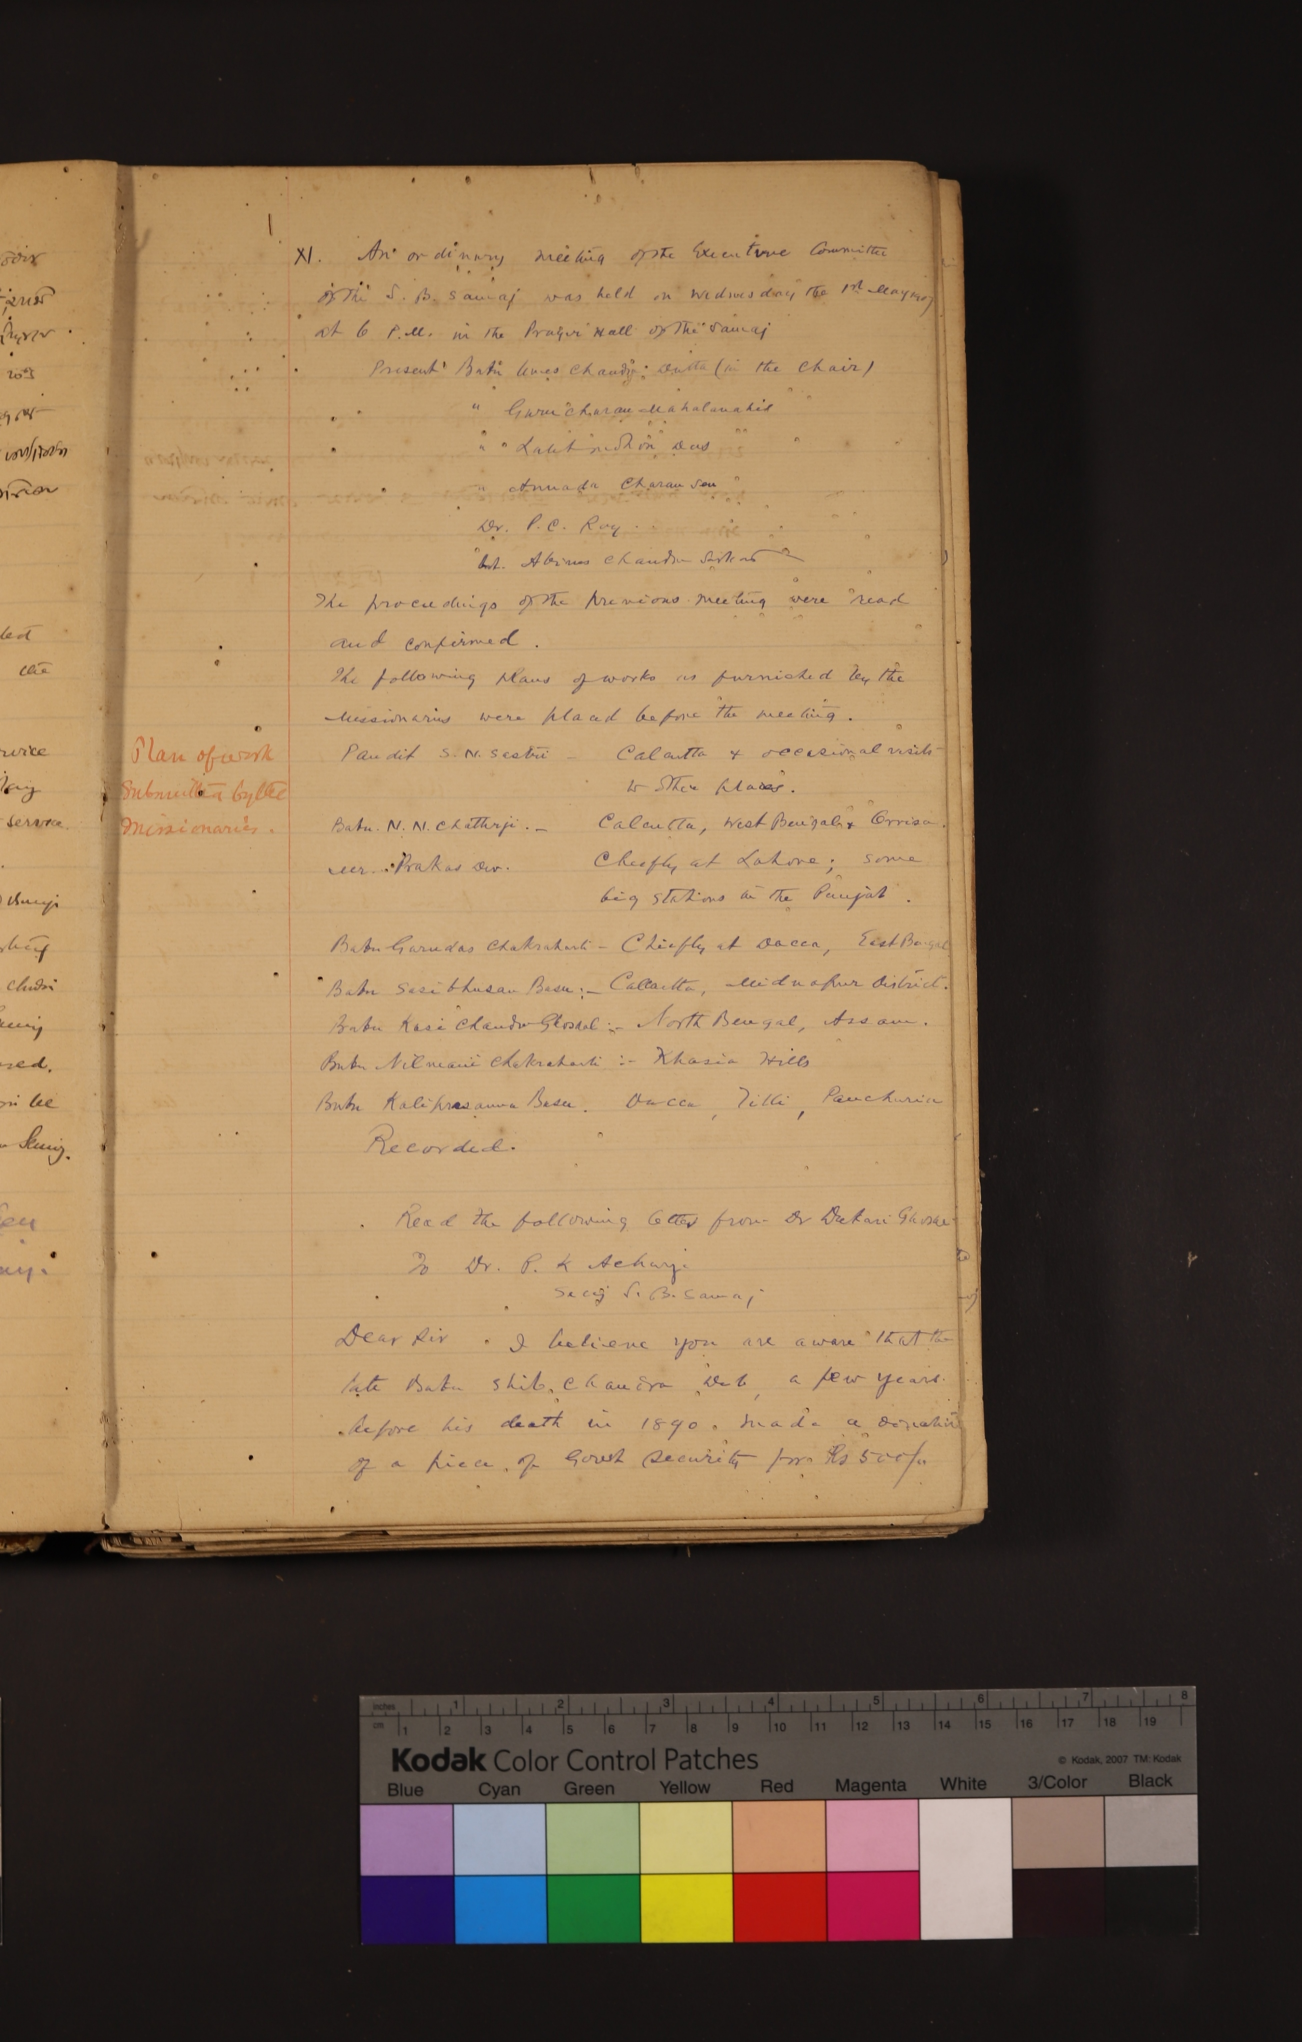 XI. An ordinary meeting of the Executive Committee
of the S. B. Samaj was held on Wednesday the 1st May
at 6 P.M. in the Prayer Hall of the Samaj
Present Babu Umes Chandra Dutta (in the chair)
" Guru Charan Mahalanabis
" " Lalit Mohon Das
" Annada Charan Sen
Dr. P. C. Roy
Abinas Chandra Sarkar
The proceedings of the previous meeting were read
and confirmed.
The following plans of works as furnished by the
Missionaries were placed before the meeting.
Plan of work
Submitted by the
Missionaries.
Pandit S. N. Sastri – Calcutta & occasional visits
to other places.
Babu. N. N. Chatterji. – Calcutta, West Bengal & Orrisa.
Mr. Prakas Dev. Chiefly at Lahore; some
big stations in the Punjab.
Babu Gurudas Chakrabarti – Chiefly at Dacca, East Bengal
Babu Sasibhusan Basu :– Calcutta, Midnapur District.
Babu Kasi Chandra Ghoshal :– North Bengal, Assam.
Babu Nilmani Chakrabarti :– Khasia Hills
Babu Kaliprasanna Basu. Dacca, Tilli, Panchuria
Recorded.
Read the following letter from Dr Dukari Ghose
To Dr. P. K Acharji
Secy S. B. Samaj
Dear Sir. I believe you are aware that the
late Babu Shib Chandra Deb, a few years
before his death in 1890. made a donation
of a piece of Govt Security for Rs 500/-
inches 1 2 3 4 5 6 7 8
cm 1 2 3 4 5 6 7 8 9 10 11 12 13 14 15 16 17 18 19
Kodak Color Control Patches © Kodak, 2007 TM: Kodak
Blue Cyan Green Yellow Red Magenta White 3/Color Black